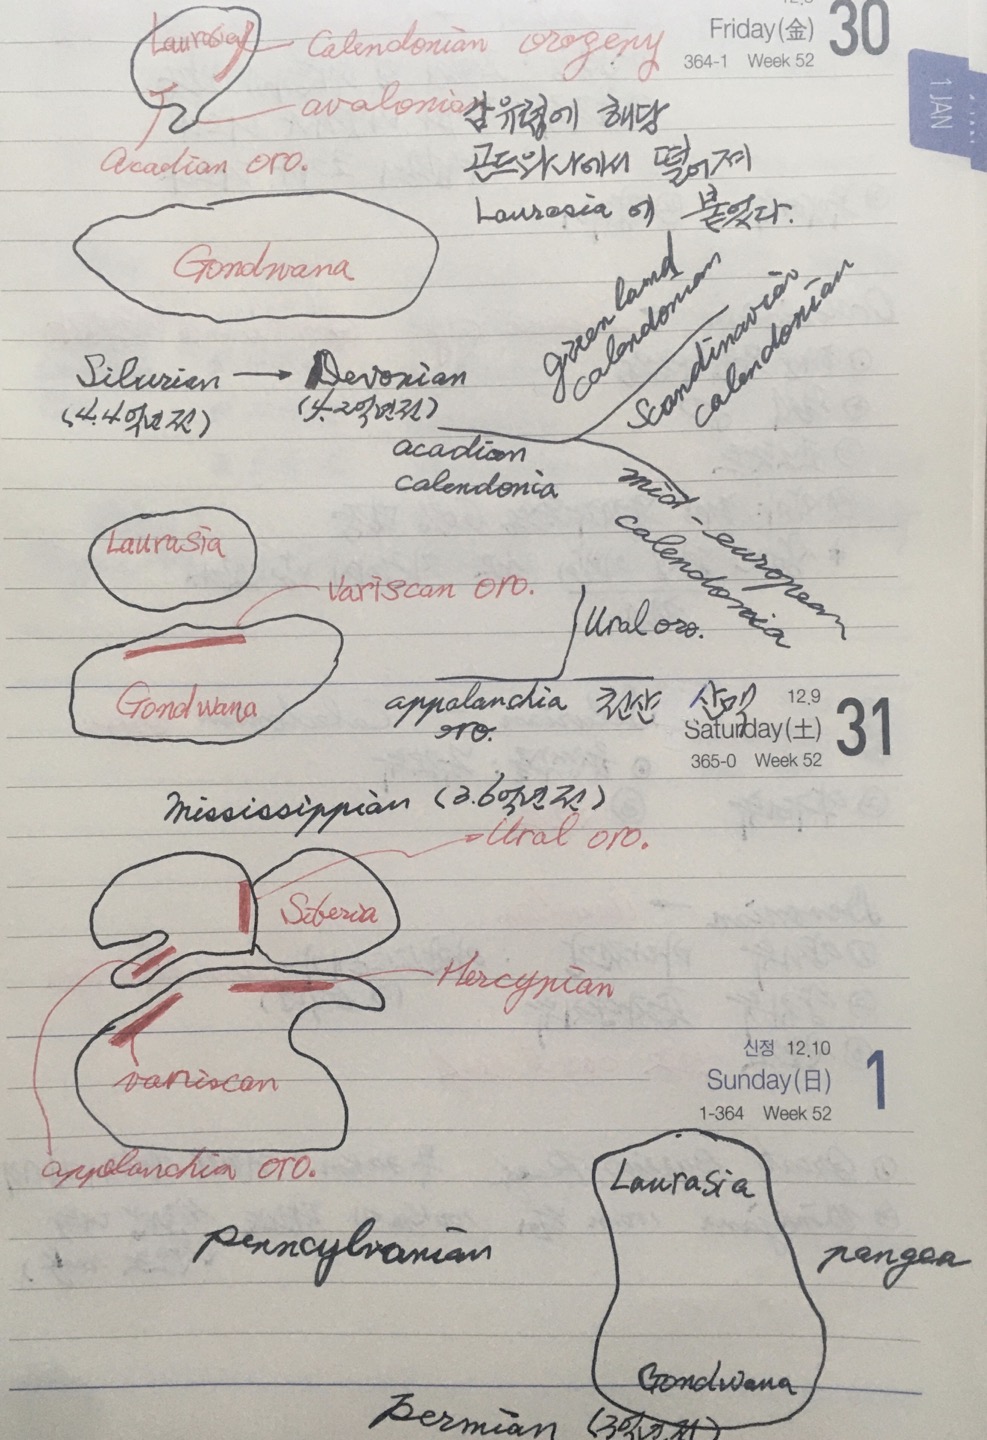 30
Friday(金)
364-1 Week 52
1 JAN
Laurasia
Calendonian orogeny
avalonian
Acadian oro.
남유럽에 해당
곤드와나에서 떨어져
Laurasia 에 붙었다.
Gondwana
greenland
calendonian
Scandinavian
calendonian
Silurian → Devonian
(4.4억년전) (4.2억년전)
acadian
calendonia
mid-european
calendonia
Laurasia
Variscan oro.
Ural oro.
Gondwana
appalanchia 천산 산맥
oro.
12.9
31
Saturday(土)
365-0 Week 52
mississippian (3.6억년전)
Ural oro.
Siberia
Hercynian
variscan
appalanchia oro.
신정 12.10
1
Sunday(日)
1-364 Week 52
Laurasia
penncylvanian
pangea
Gondwana
permian (3억년전)